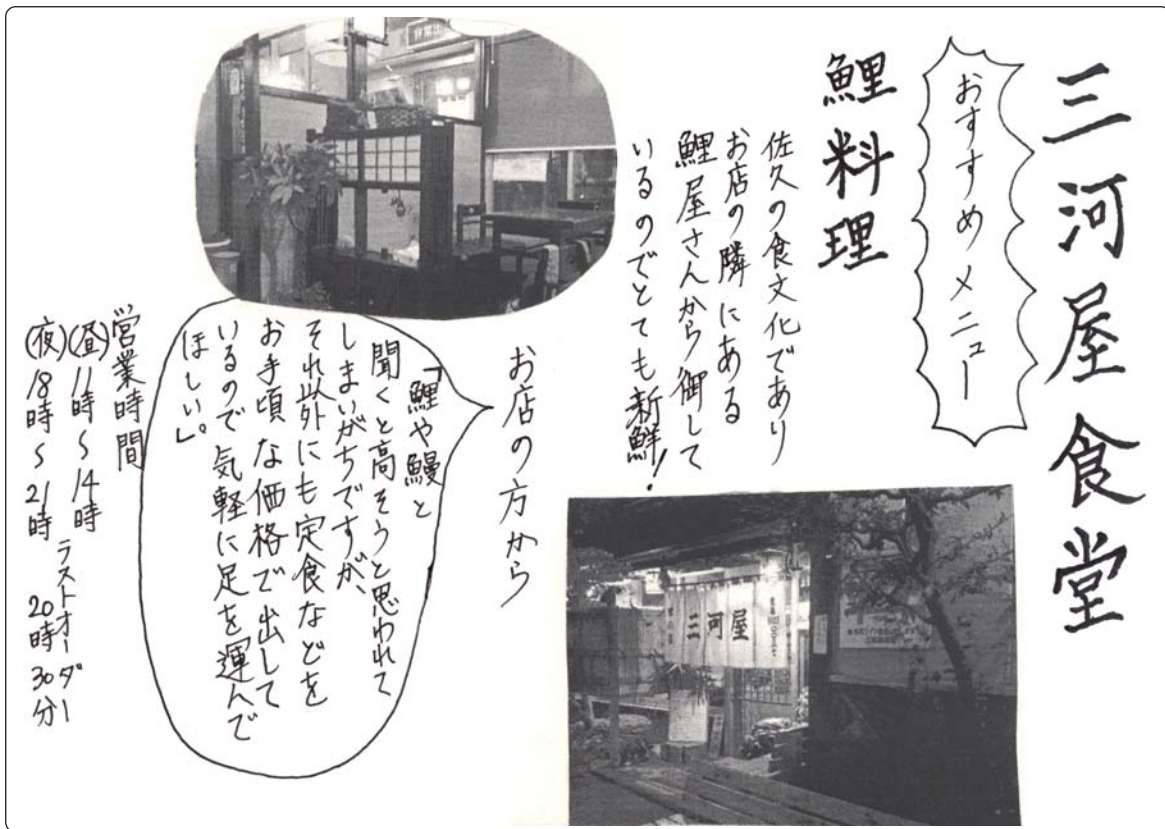 三河屋食堂
おすすめメニュー
鯉料理
佐久の食文化であり
お店の隣にある
鯉屋さんから御して
いるのでとても新鮮!
お店の方から
「鯉や鰻と
聞くと高そうと思われて
しまいがちですが、
それ以外にも定食などを
お手頃な価格で出して
いるので気軽に足を運んで
ほしい。」
営業時間
(昼)11時~14時
ラストオーダー
(夜)18時~21時 20時30分
三河屋